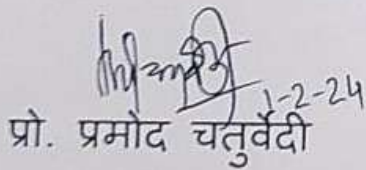 1-2-24
प्रो. प्रमोद चतुर्वेदी